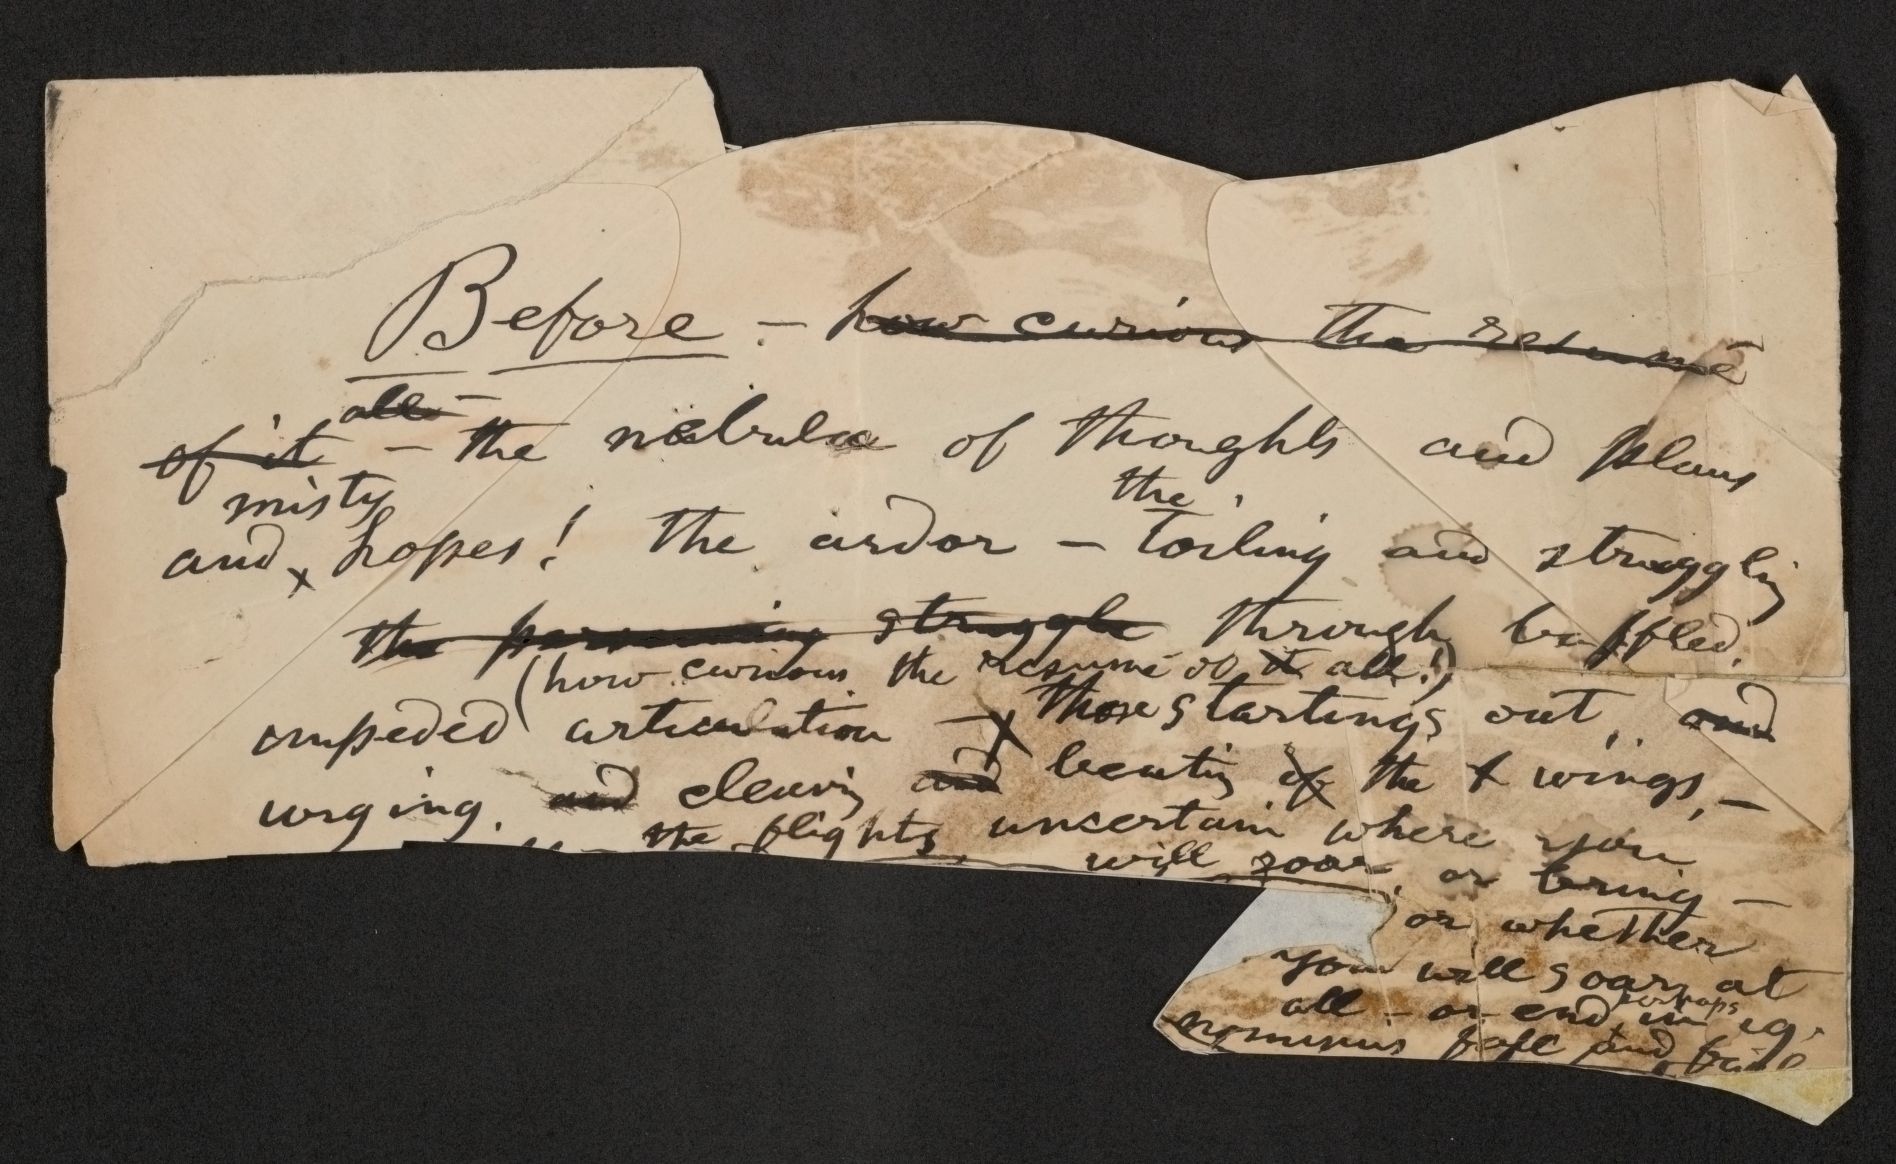 Before – how curious the resumé
all –
of it – the nebulae of thoughts and plans
misty the
and x hopes! the ardor – toiling and struggling
the struggle through baffled,
(how curious the resumé of it all!)
impeded articulation – x those startings out, and
urging, and cleaving and beating of the wings, –
the flights, uncertain where you
will soar, or bring –
or whether
you will soar at
all – or end perhaps in ig-
nominious fall and fail